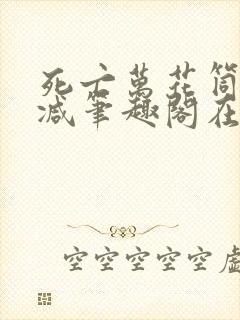 死亡萬花筒
减笔趣阁在
空空空空空虛